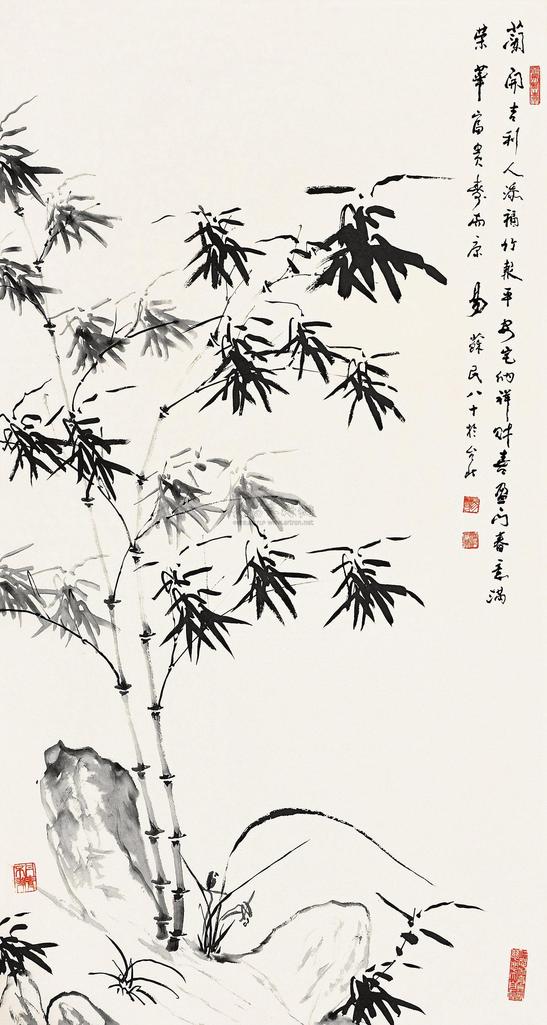 蘭開吉利人添福竹報平安宅納祥財喜盈門春意滿
榮華富貴壽而康 易蘇民八十於台北
www.artron.net